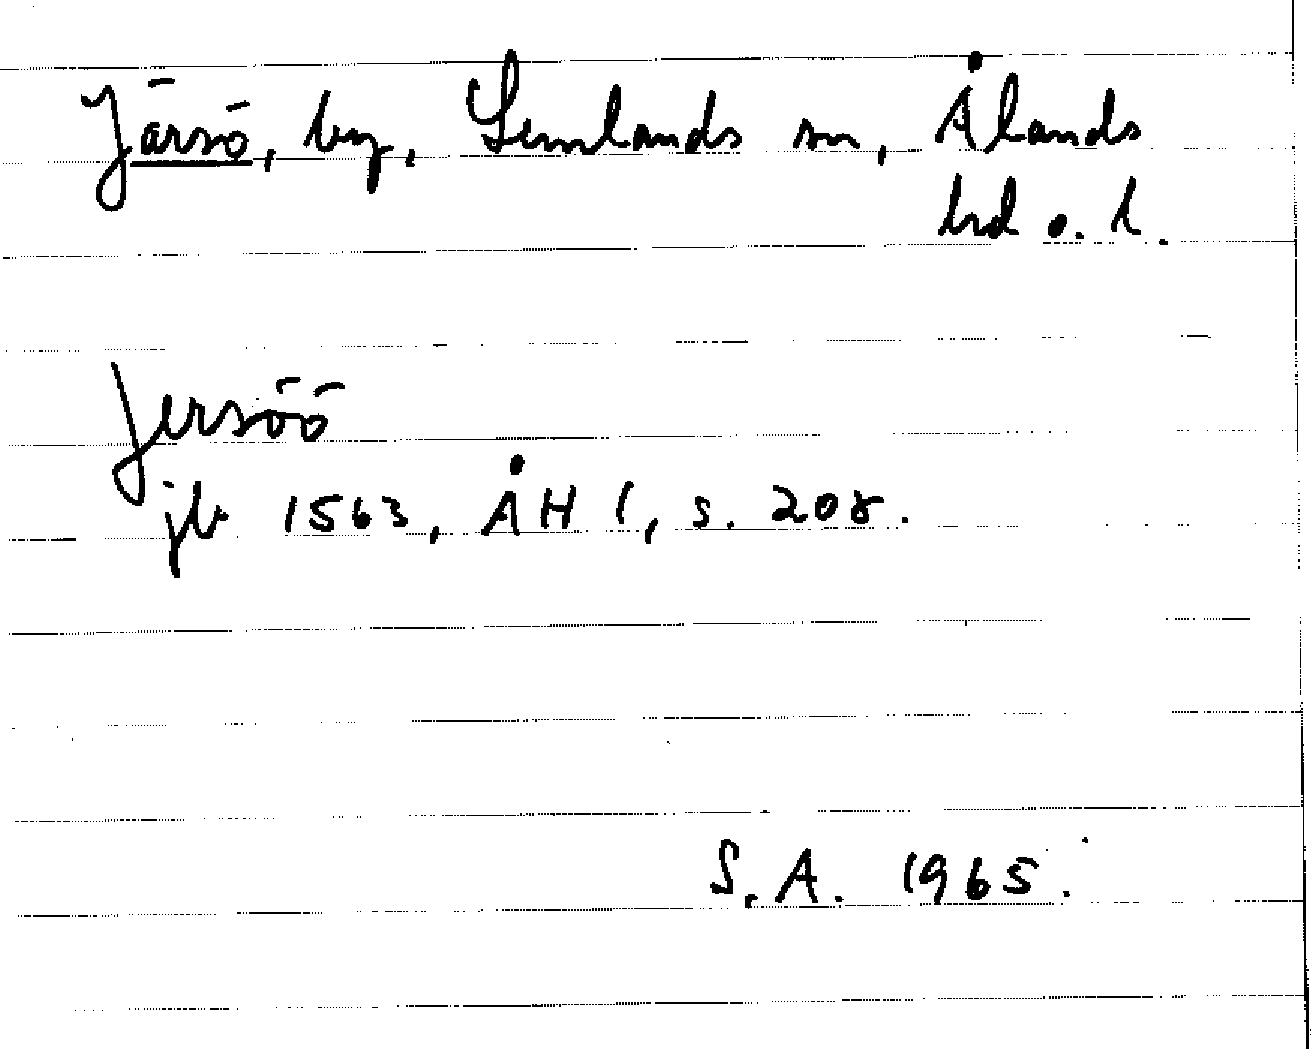 Järsö, by, Lemlands sn, Ålands
hd o. l.
Jersöö
jb 1563, ÅH 1, s. 208.
S.A. 1965.